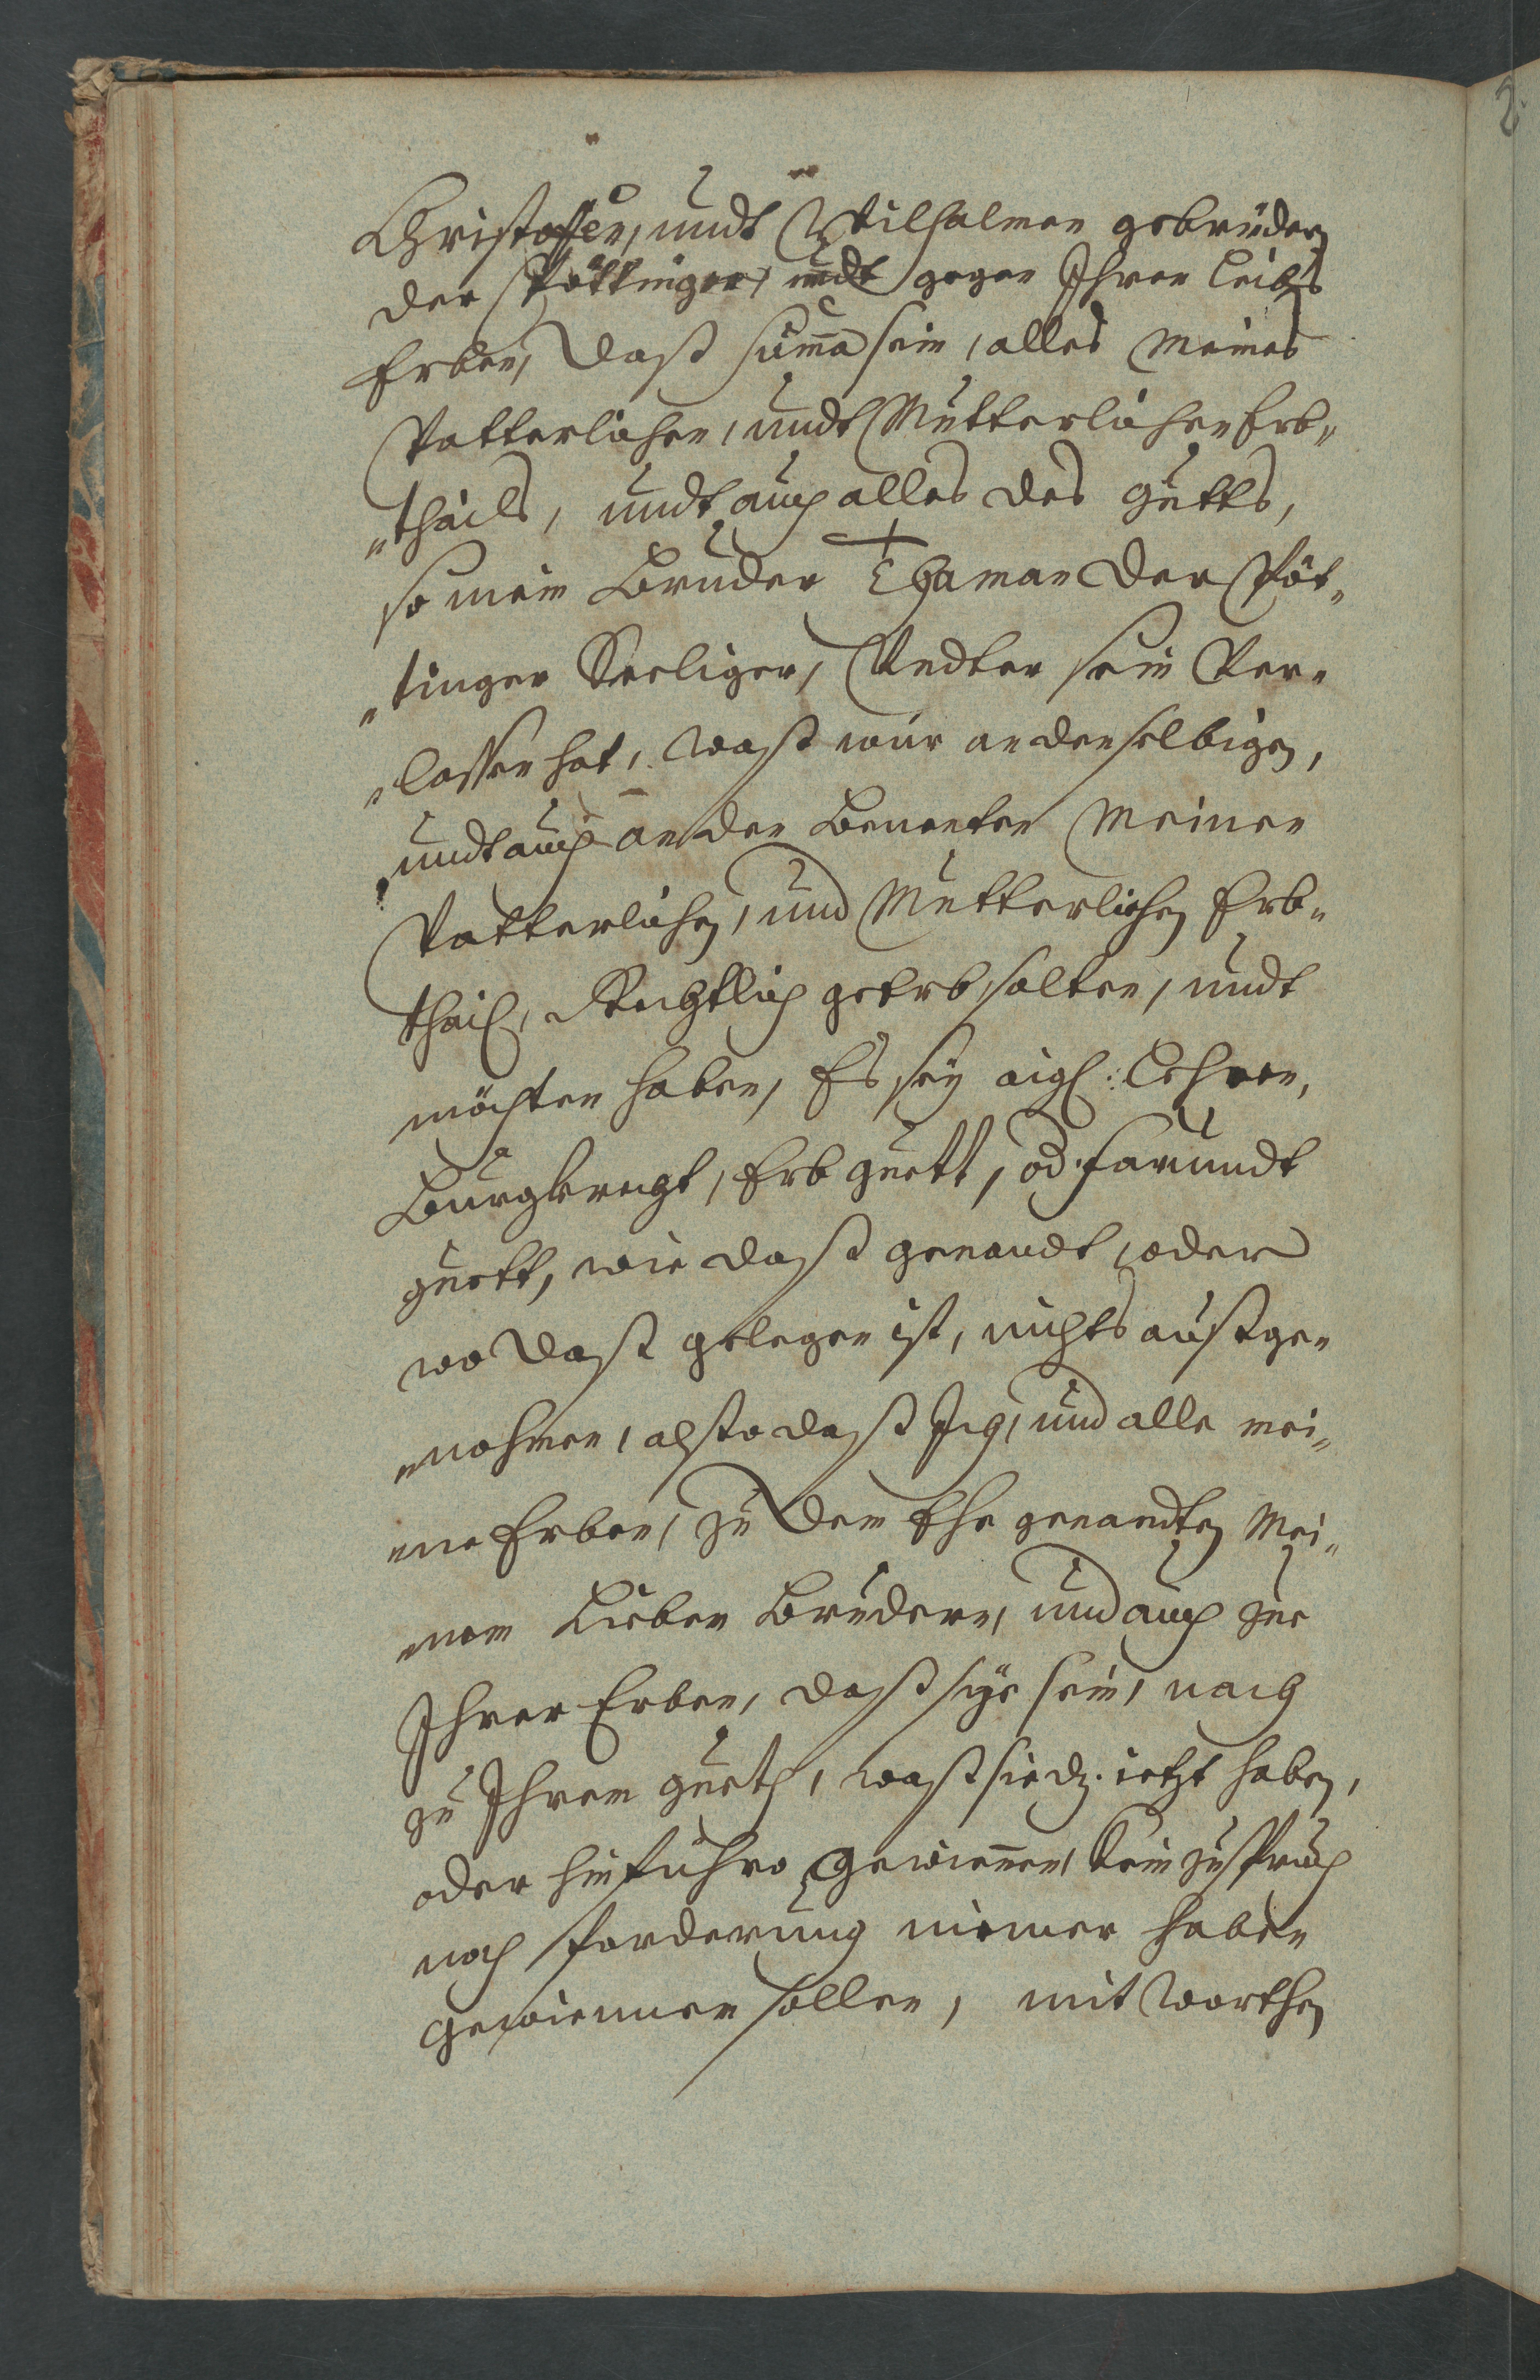 Christoffen, undt Wilhalmen gebrüder
der Pöttinger, undt gegen Ihren Leibs
Erben, daß suma sein, alles meines
Vatterlichen, undt Mutterlichen Erb„
„thails, undt auch alles des gutts,
so mein Bruder Thaman der Pöt„
„tinger Seeliger, Undter sein Ver„
„lassen hat, waß wür an denselbigen,
undt auch an den benenten meinen
Vatterlichen, und Mutterlichen Erb„
thail, Rechtlich geerb solten, undt
möchten haben, Es sey aigl: Lehren,
Burgkrecht, Erb guett, od. farundt
guett, wie daß genandt, oder
wo daß gelegen ist, nichts außge„
„nohmen, also daß Ich, und alle mei„
„ne Erben, zu den Ehe genandten Mei„
„nen Lieben Brüdern, und auch zue
Ihrer Erben, daß sye sein, nach
zu Ihrem gueth, waß sie dz. ietzt haben,
oder hinführo gewinnen, kein zuspruch
noch forderung nimer haben
gewinnen sollen, mit worthen
2.